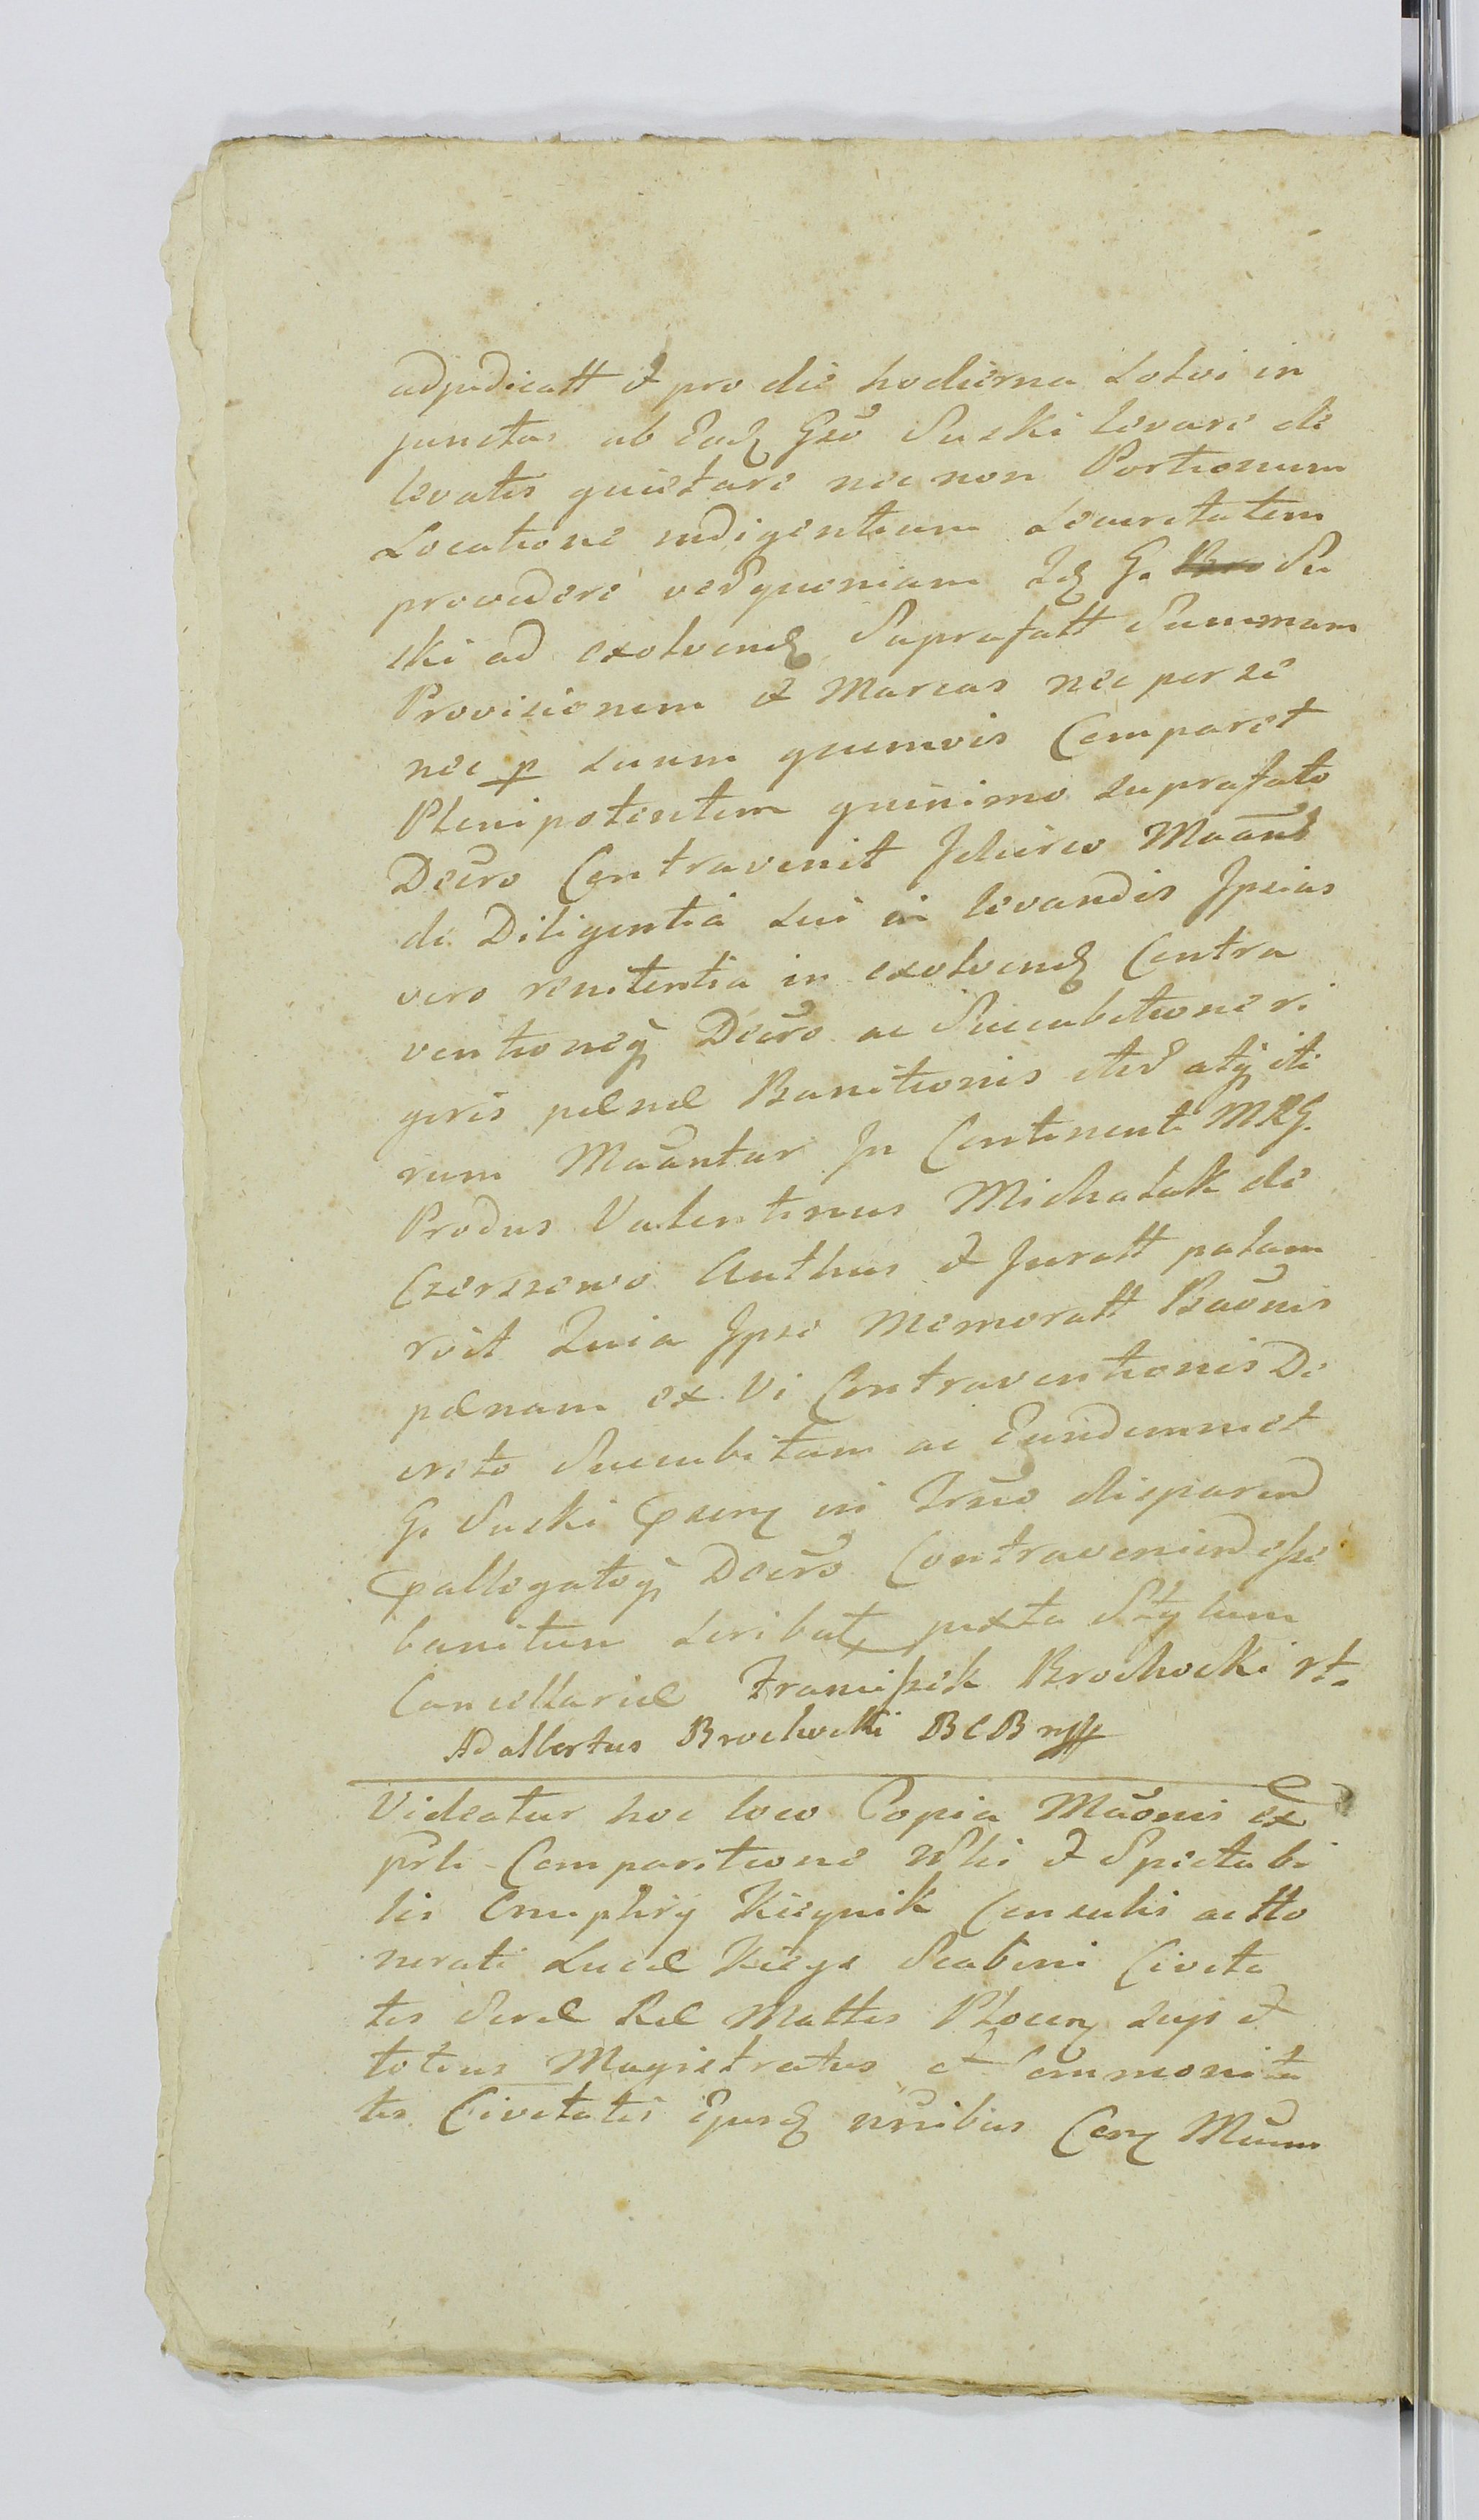 adjudicatt et pro die hodierna Solvi in
junctas ab Eodem Gso Suski levare de
levatis quietare nec non Portionum
Locatione indigentium Securitatem
providere vedquoniam Id G. Su
ski ad exolvend Suprafatt Summam
Provisionem et Marcas nec per se
nec p Suum quemvis Comparet
Plenipotentem quinimo suprafato
Decro Contravenit Idcirco Maans
de Diligentia Sui in levandis Ipsius
vero renitentia in exolvend Contra
ventioneq Decro ac Succubitione ri
goris pænæ Banitionis ited atq ite
rum Maantur In Continenti MRG.
Produs Valentinus Michalak de
Czerszewo Authus et Juratt palam
rvit Quia Ipse Memoratt Baonis
pænam ex Vi Contraventionis De
creto Succubitam ac Eundemmet
G. Suski in Trno disparend
allegatoq Decro Contraveniend esse
banitum Scribat juxta Stylum
Cancellariæ Franciszek Brochocki rt.
Adalbertus Brochocki BCB
Videatur hoc loco Copia Maonis ex
prli Comparitione Nlis et Spectabi
lis Onuphrij Księżnik Consulis ac Ho
norati Lucæ Consul Scabini Civita
tis Seræ Ræ Mattis Plocen Suis et
totius Magistratus et Communita
tis Civitatis Ejusd nnibus Cong Muum